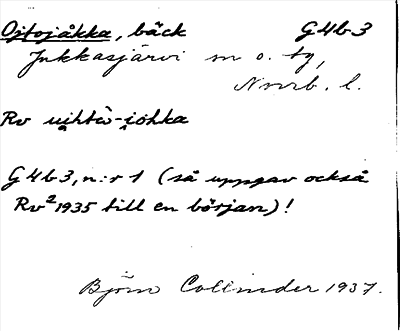 Ojtojåkka, bäck G4b3
Jukkasjärvi sn o. tg,
Norrb. l.
Rv ui̯htē-i̯ohka
G4b3, n:r 1 (så uppgav också
Rv² 1935 till en början)!
Björn Collinder 1937.